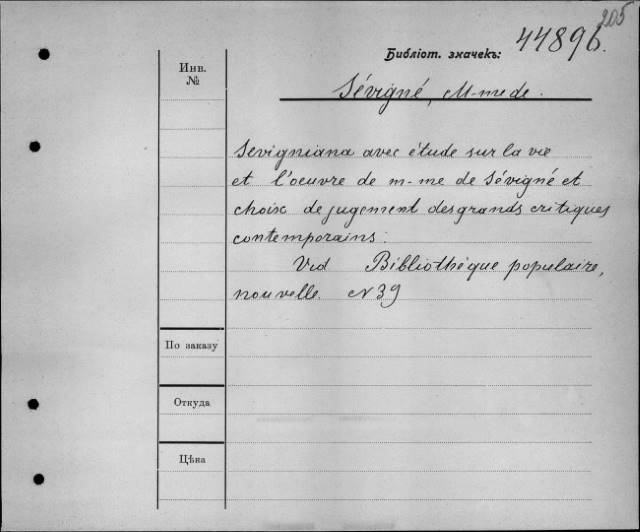 205
Библіот. значекъ: 44896.
Инв.
№
Sévigné, M-me de.
Sevigniana avec étude sur la vie
et l'oeuvre de m-me de Sévigné et
choix de jugement des grands critiques
contemporains.
Vid Bibliothèque populaire,
nouvelle. N 39
По заказу
Откуда
Цѣна